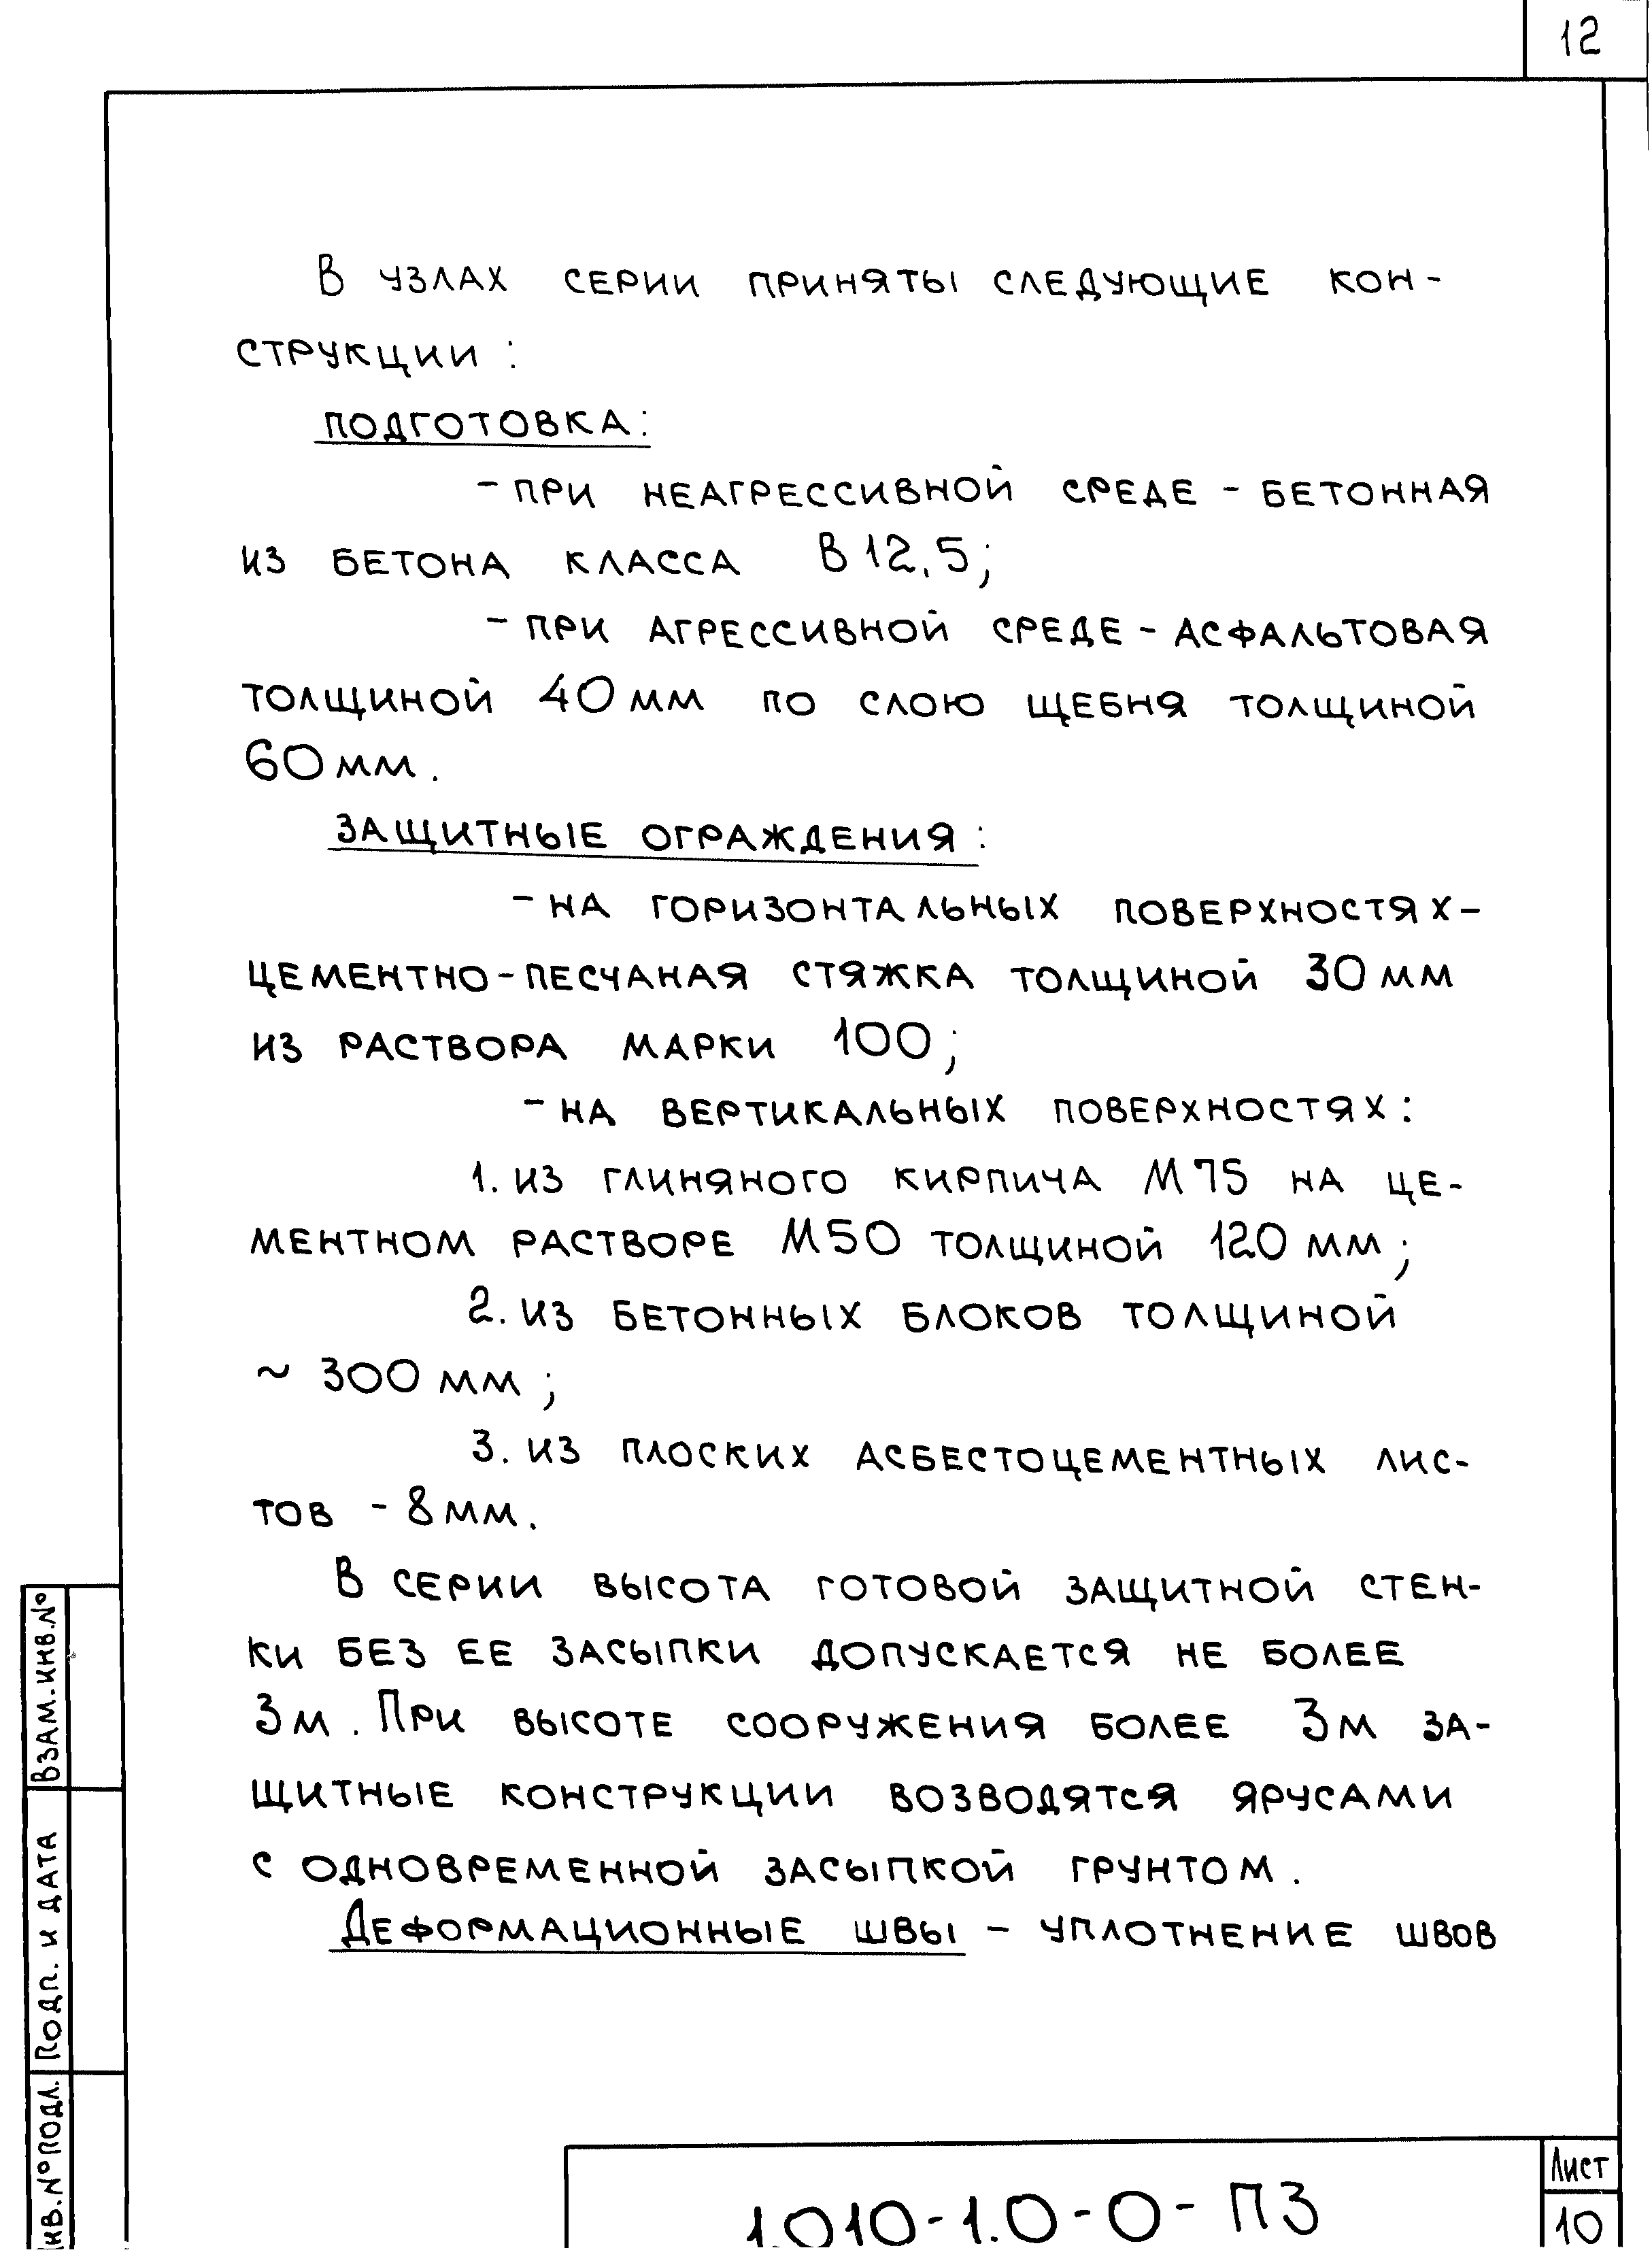 12
В узлах серии приняты следующие кон-
струкции:
Подготовка:
- при неагрессивной среде - бетонная
из бетона класса В12,5;
- при агрессивной среде - асфальтовая
толщиной 40мм по слою щебня толщиной
60мм.
Защитные ограждения:
- на горизонтальных поверхностях -
цементно-песчаная стяжка толщиной 30мм
из раствора марки 100;
- на вертикальных поверхностях:
1. из глиняного кирпича М75 на це-
ментном растворе М50 толщиной 120мм;
2. из бетонных блоков толщиной
~ 300мм;
3. из плоских асбестоцементных лис-
тов - 8мм.
В серии высота готовой защитной стен-
ки без ее засыпки допускается не более
3м. При высоте сооружения более 3м за-
щитные конструкции возводятся ярусами
с одновременной засыпкой грунтом.
Деформационные швы - уплотнение швов
Взам.инв.№
Подп. и дата
Инв.№подл.
1.010-1.0-0-ПЗ
Лист
10